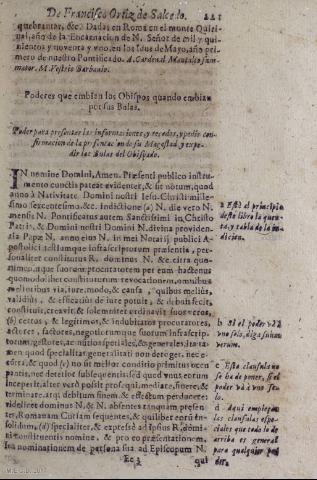 De Francisco Ortiz de Salcedo. 221
quebrantar, &c. Dadas en Roma en el monte Quiri-
nal, año de la Encarnacion de N. Señor de mil y qui-
nientos y noventa y vno, en los Idus de Mayo, año pri-
mero de nuestro Pontificado. A. Cardenal Montalto sum-
mator. M. Vestrio Barbaulo.
Poderes que embian los Obispos quando embian
por sus Bulas.
Poder para presentar las informaciones, y recados, y pedir con-
firmacion de la presentacion de su Magestad, y expe-
dir las Bulas del Obispado.
IN nomine Domini, Amen. Præsenti publico instru-
mento cunctis pateat evidenter, & sit notum, quod
anno à Nativitate Domini nostri Iesu-Christi mille-
simo sexcentesimo, &c. Indictione (a) N. die vero N.
mensis N. Pontificatus autem Sanctissimi in Christo
Patris, & Domini nostri Domini N. divina providen-
tia Papæ N. anno eius N. in mei Notarij publici A-
postolici testiumque infrascriptorum præsentia, per-
sonaliter constitutus R. dominus N. &c. citra quo-
rumcumque suorum procuratorem per eum hactenus
quomodolibet constitutorum revocationem, omnibus
melioribus via, iure, modo, & causa, quibus melius,
validius, & efficacius de iure potuit, & debuit fecit,
constituit, creavit, & solemniter ordinavit suos veros,
(b) certos, & legitimos, & indubitatos procuratores,
actores, factores, negotiorumque suorum infrascrip-
torum gestores, ac nuntios speciales, & generales, ita ta-
men quod specialitas generalitati non deroget, nec è
contra, & quod (c) no sit melior conditio primitus occu-
pantis, nec deterior subsequentis, sed quod vnus eorum
inceperit, alter verò possit prosequi, mediare, finire, &
terminare, atq; debitum finem, & effectum perducere:
videlicet dominus N. & N. absentes tanquam præsen-
tes, Romanam Curiam sequentes, & quilibet eorum in-
solidum, (d) specialiter, & expressè ad ipsius R. domi-
ni constituentis nomine, & pro eo præsentationem,
seu nominationem de persona sua ad Episcopum N.
Ee 3 qui
a Està el principio
deste libro la quen-
ta, y tabla de la in-
dicion.
b Si el poder và à
vno solo, diga suum
verum.
c Esta clausula no
se ha de poner, si el
poder và à vno so-
lo.
d Aqui empieçan
las clausulas espe-
ciales que todo lo de
arriba es general
para qualquier po-
der.